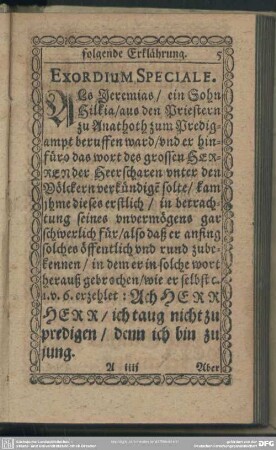 folgende Erklährung. 5
EXORDIUM SPECIALE.
ALs Jeremias / ein Sohn
Hilkia / aus den Priestern
zu Anathoth zum Predig-
ampt beruffen ward / vnd er hin-
füro das wort des grossen HER-
REN der Heerscharen vnter den
Völckern verkündigẽ solte / kam
jhme dieses erstlich / in betrach-
tung seines vnvermögens gar
schwerlich für / also daß er anfing
solches öffentlich vnd rund zube-
kennen / in dem er in solche wort
herauß gebrochen / wie er selbst c.
1. v. 6. erzehlet: Ach HERR
HERR / ich taug nicht zu
predigen / denn ich bin zu
jung.
A iiij Aber